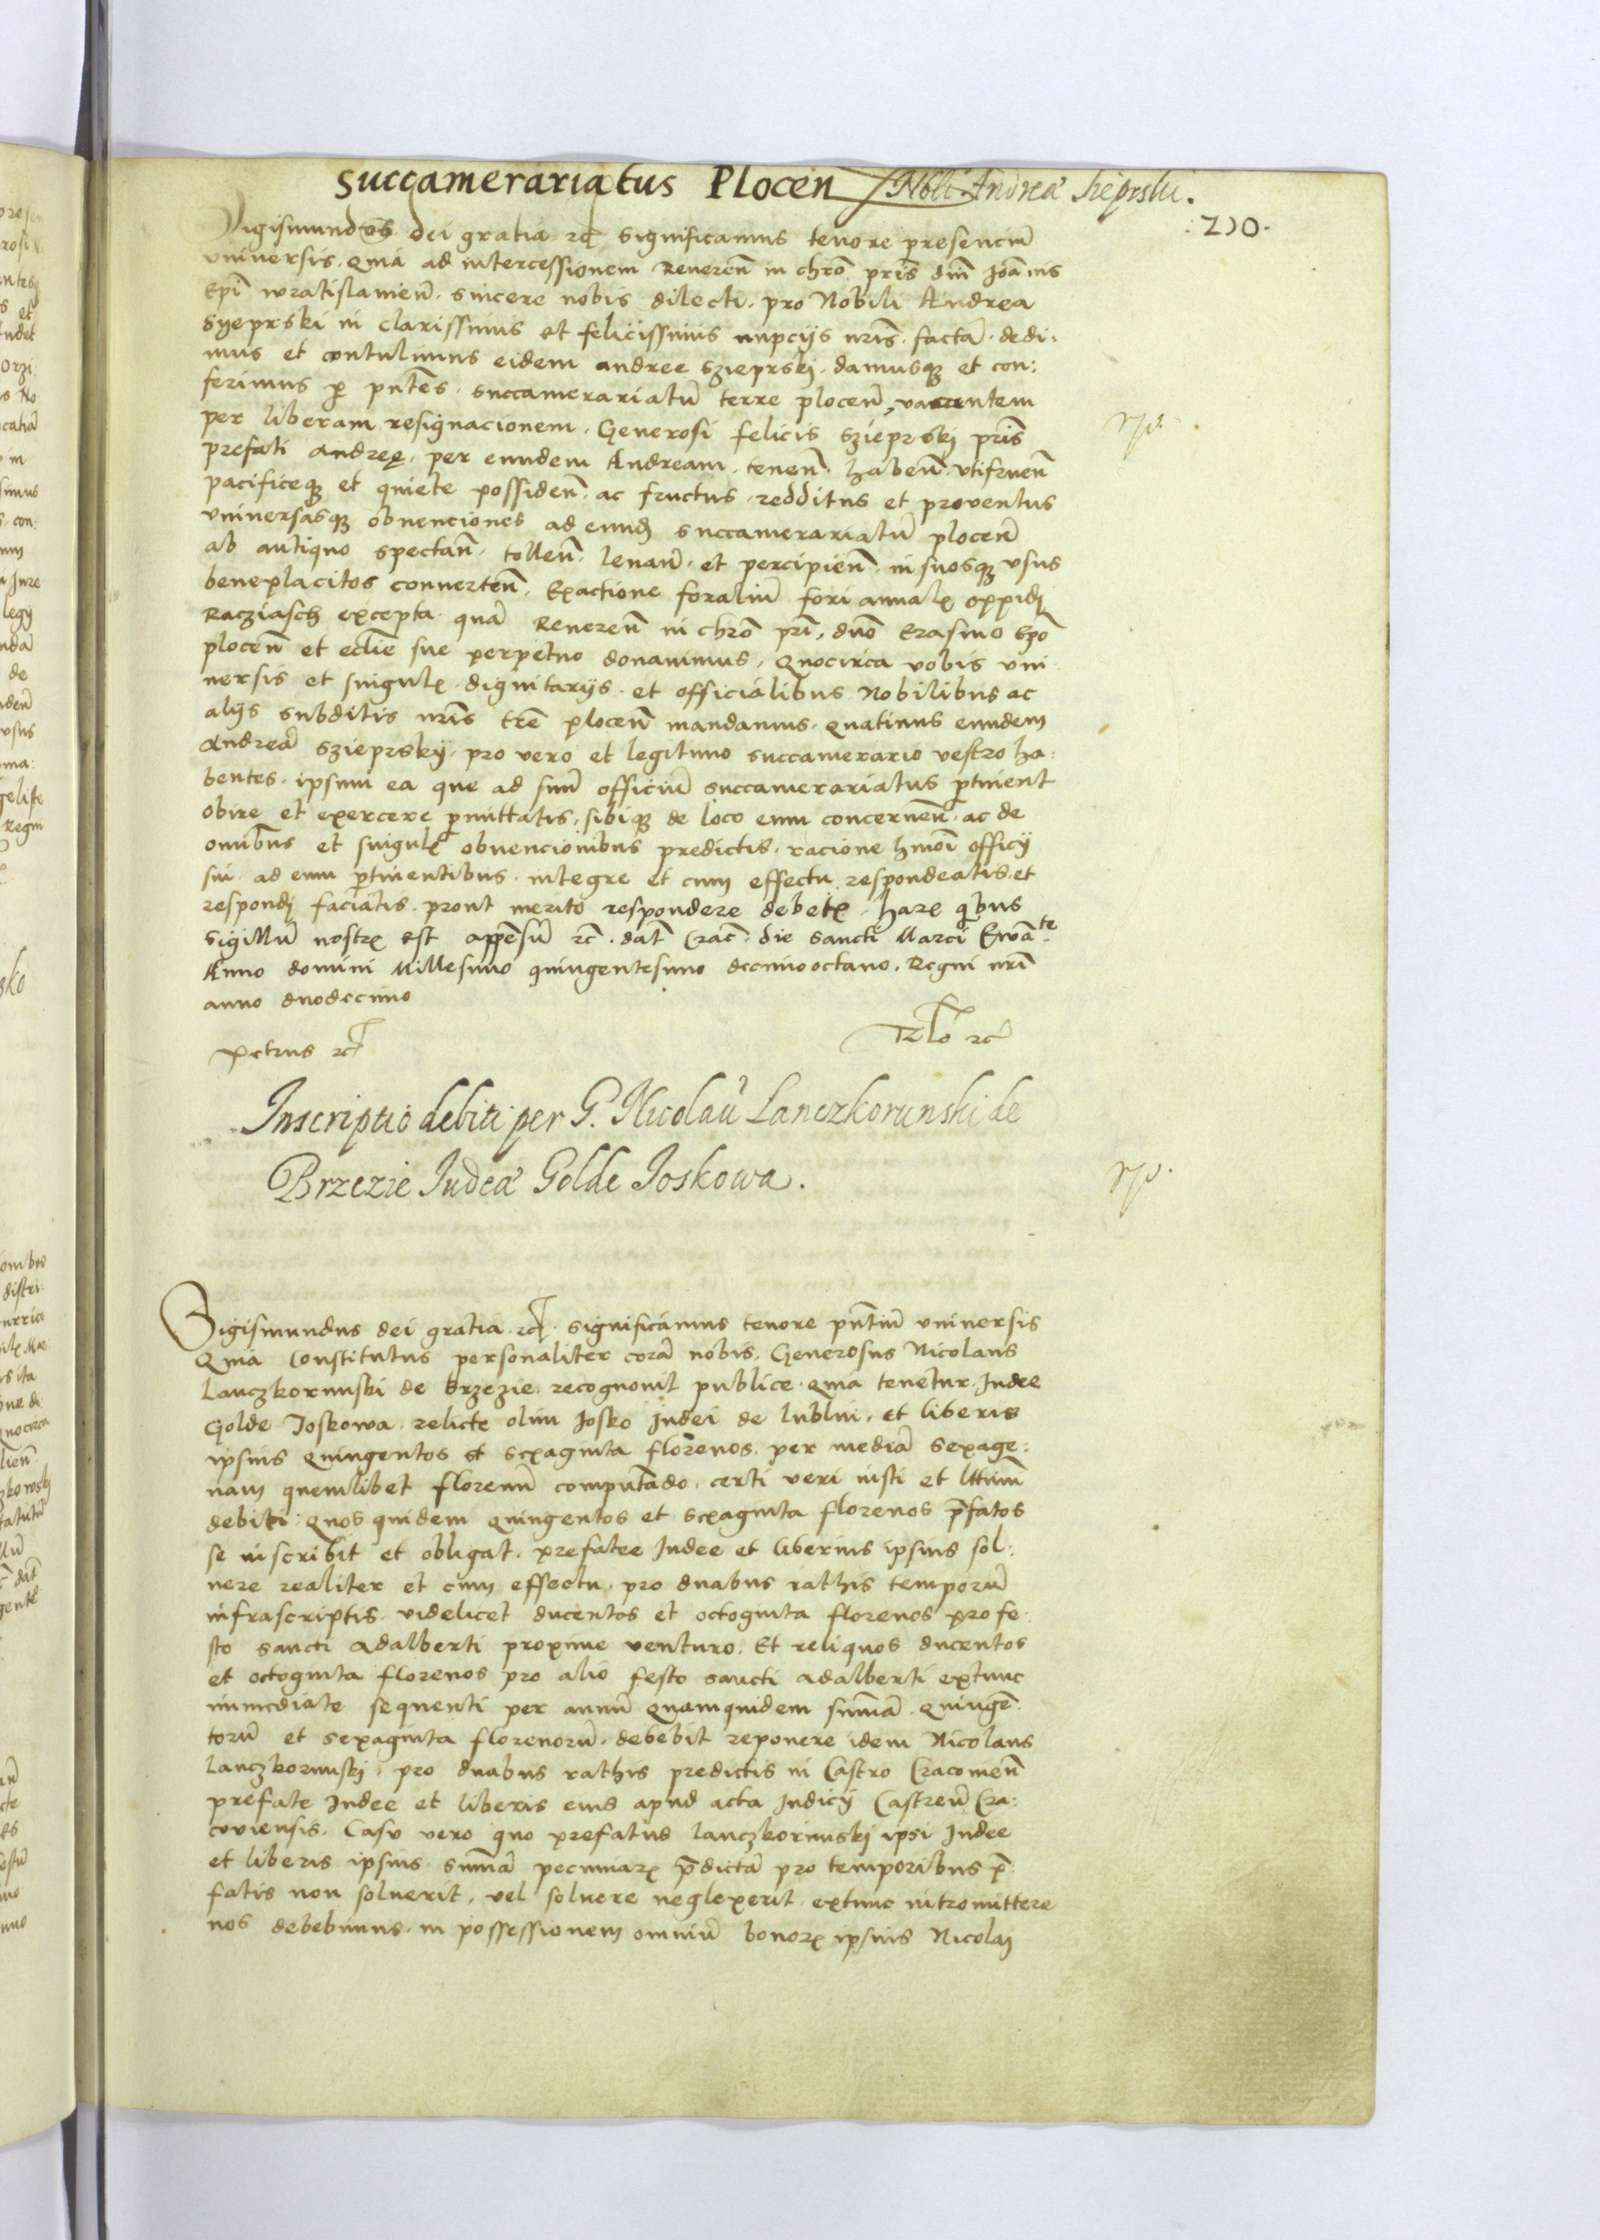 succamerariatus Plocen̄ Nobli Andreæ Sieprski.
210.
Sigismundus dei gratia rc̄ significamus tenore presenciū
vniversis. Quia ad intercessionem Reueren̄ in chrō pris dnī Joānis
Epī wratislauien̄. sincere nobis dilecti. pro Nobili Andrea
Syeprski in clarissimis et felicissimis nupcijs nrīs. factā. dedi.
mus et contulimus eidem andree Szieprskj. damusqȝ et con:
ferimus ꝑ pn̄tes. succamerariatū terre plocen̄, vacantem
per liberam resignacionem. Generosi felicis Szieprskj prīs
prefati andreę. per eundem Andream. tenen̄. haben̄. vtifruen̄
pacificeqȝ et quiete possiden̄. ac fructus. redditus et proventus
vniuersasqȝ obuenciones ad eundȝ succamerariatū plocen̄
ab antiquo spectan̄. tollen̄. leuan̄. et percipien̄. in suosqȝ vsus
beneplacitos conuerten̄. Exactione foraliū fori annalꝭ oppidj
Racziasch excepta. quā Reueren̄ in chrō prī, dnō Erasmo Epō
plocen̄ et eclīe sue perpetuo donauimus. Quocirca vobis vni
uersis et singulꝭ. dignitarijs. et officialibus Nobilibus ac
alijs subditis nrīs trē plocen̄ mandamus. quatinus eundem
Andreā Szieprskij. pro vero et legitimo succamerario vestro ha:
bentes. ipsum ea que ad suū officiū succamerariatus ꝑtinent
obire et exercere ꝑmittatis. sibiqȝ de loco eum concernen̄. ac de
omībus et singulꝭ obuencionibus predictis. racione hmōi officij
sui. ad eum ꝑtinentibus. integre et cum effectu respondeatis. et
respondj faciatis. prout merito respondere debetꝭ. harꝝ qͥbus
Sigillū nostrꝝ est appēsū rc̄. dat̄ Crac̄. die sancti Marci Ewāᵗᵉ.
Anno domini Millesimo quingentesimo decimooctauo. Regni nrī
anno duodecimo
Petrus rc̄
rc̄
Inscriptio debiti per G. Nicolaū Lanczkorunski de
Brzezie Iudeæ Golde Ioskowa.
Sigismundus dei gratia. rc̄. significamus tenore pn̄tiū vniuersis
Quia Constitutus personaliter corā nobis. Generosus Nicolaus
Lanczkorunski de Brzezie. recognouit publice. quia tenetur. Judee
Golde Joskowa. relicte olim Josko Judei de lublin. et liberis
ipsius quingentos et sexaginta florenos. per mediā sexage:
nam quemlibet florenū computādo. certi veri iusti et lttimī
debiti. quos quidem quingentos et sexaginta florenos p̄fatos
se inscribit et obligat. prefatee Judee et liberius ipsius sol:
uere realiter et cum effectu. pro duabus rathis temporū
infrascriptis. videlicet ducentos et octoginta florenos pro fe.
sto sancti Adalberti proxime venturo. Et reliquos ducentos
et octoginta florenos pro alio festo sancti Adalberti extunc
immediate sequenti per annū quamquidem summā. quingē.
torū et sexaginta florenorū. debebit reponere idem Nicolaus
Lanczkorunskj. pro duabus rathis predictis in Castro Cracouien̄
prefate Judee et liberis eius apud acta Judicij Castren̄ Cra:
couiensis. Casu vero quo prefatus lanczkorunskj ipsi Judee
et liberis ipsius summā pecuniarꝝ p̄dictā pro temporibus p̄.
fatis non soluerit. vel soluere neglexerit. extunc intromittere
nos debebimus. in possessionem omniū bonorꝝ ipsius Nicolaj